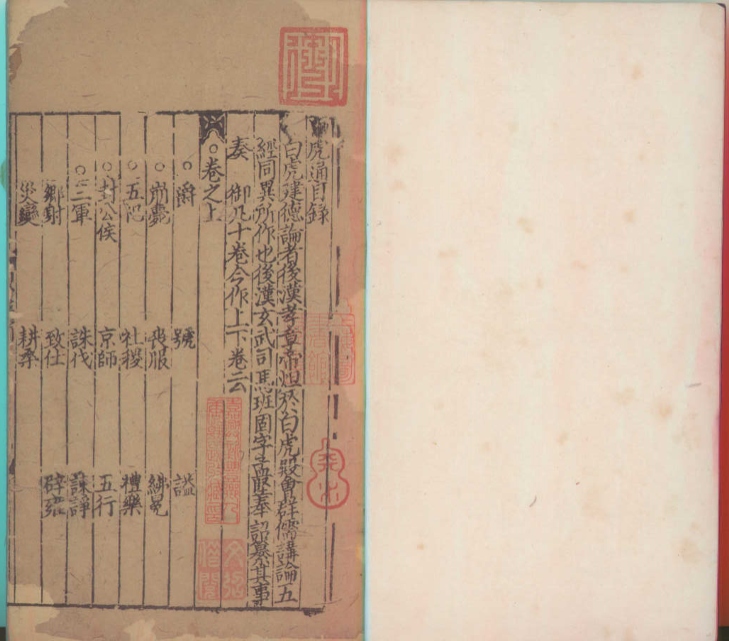 虎通目録
白虎建德論者後漢孝章帝坦於白虎殿會群儒講論五
經同異所作也後漢玄武司馬班固字孟堅奉 詔纂其事
奏 御乃十卷今作上下卷云
○卷之上
○爵 號 謚
○帝 喪服 紼冕
○五祀 社稷 禮樂
○封公侯 京師 五行
○三軍 誅伐 諫諍
鄉射 致仕 辟雍
災變 耕桑